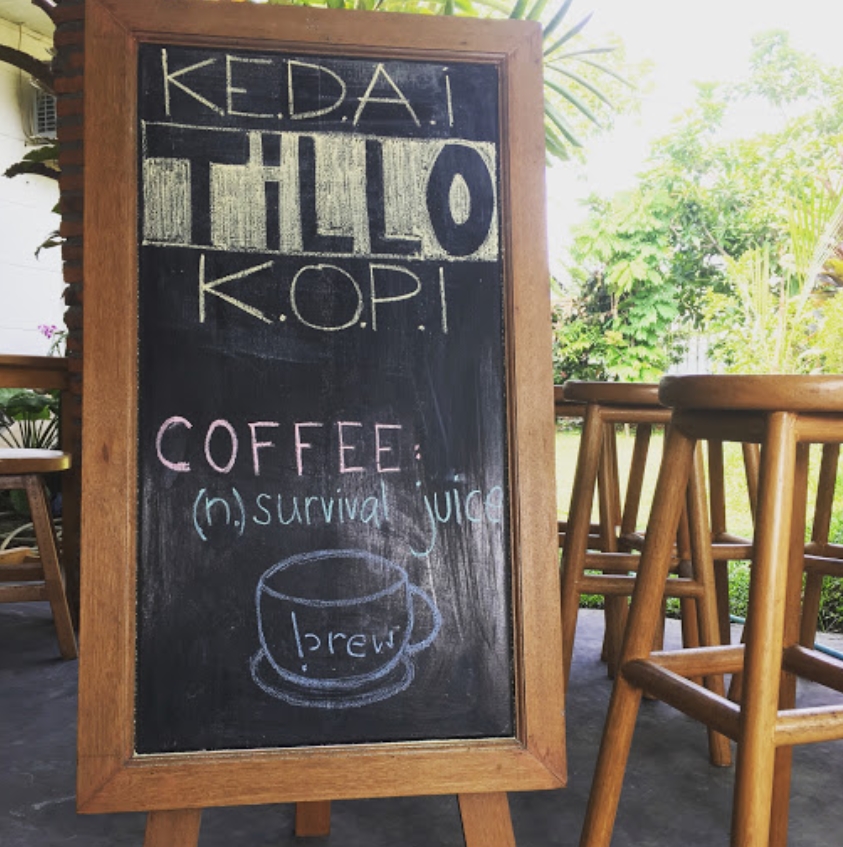 K.E.D.A.i
THLLO
K.O.P.I
COFFEE:
(n.) survival juice
brew